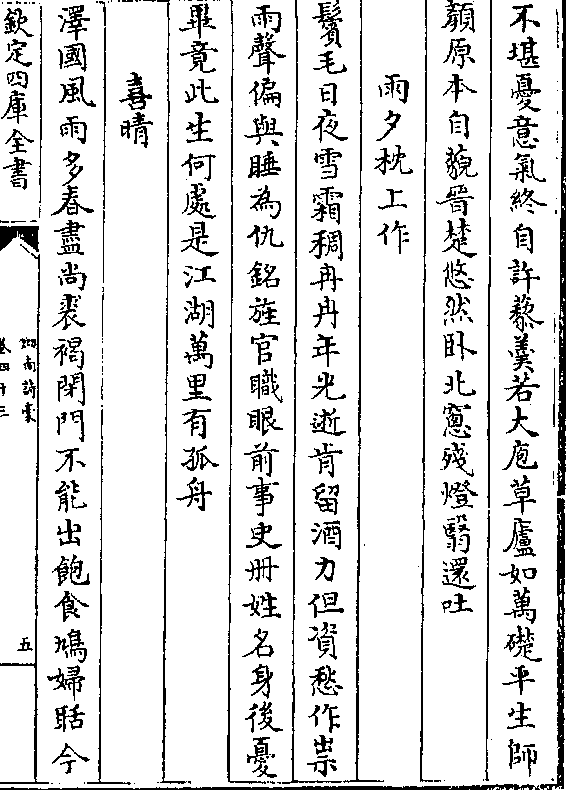 不堪憂意氣終自許藜羮若大庖草廬如萬礎平生師
顔原本自藐晉楚悠然卧北窻殘燈翳還吐
雨夕枕上作
鬢毛日夜雪霜稠冉冉年光逝肯留酒力但資愁作祟
雨聲偏與睡為仇銘旌官職眼前事史册姓名身後憂
畢竟此生何處是江湖萬里有孤舟
喜晴
澤國風雨多春盡尚裘褐閉門不能出飽食鳩婦聒今
欽定四庫全書
劒南詩稾
卷四十三
五